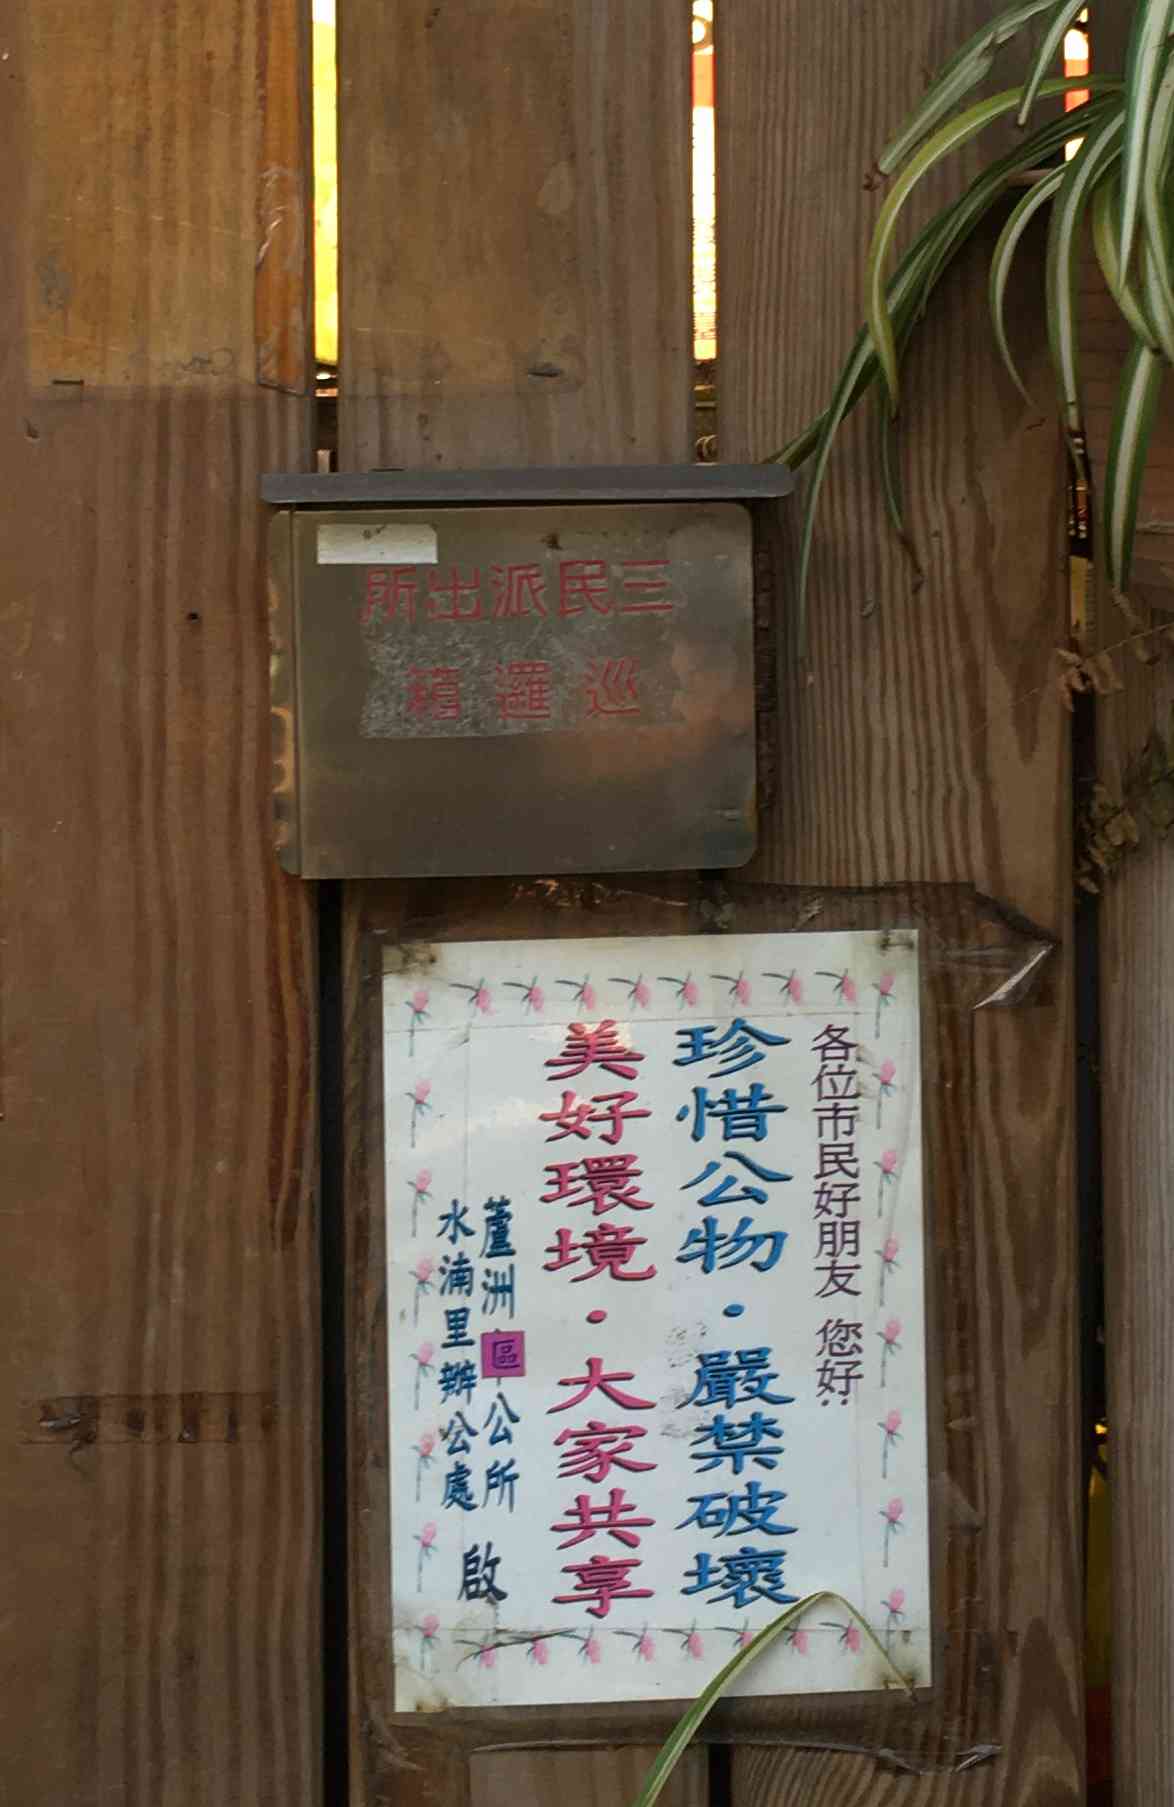 三民派出所
巡邏箱
各位市民好朋友 您好:
珍惜公物·嚴禁破壞
美好環境·大家共享
蘆洲區公所
水湳里辦公處
啟